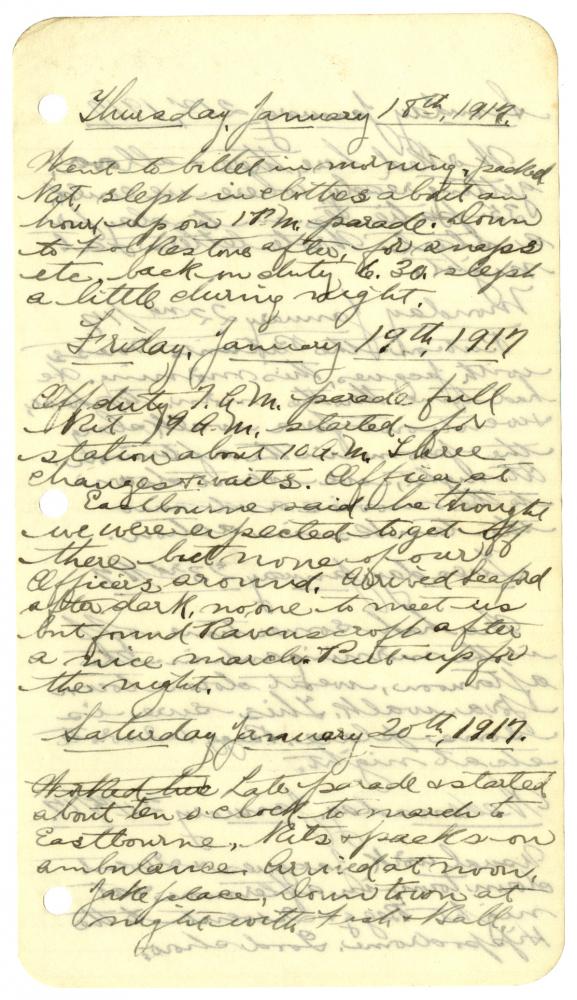 Thursday, January 18th, 1917.
Went to billet in morning, packed
Kit, slept in clothes about an
hour, up on 1 P.M. parade. Down
to Folkestone after, for snaps
etc, back on duty 6.30. slept
a little during night.
Friday, January 19th, 1917
Off duty 7. A.M. parade full
Kit 9 A.M. started for
station about 10 A.M. Three
changes & waits. Officer at
Eastbourne said he thought
we were expected to get off
there but none of our
Officers around. Arrived Seaford
after dark, no one to meet us
but found Ravenscroft after
a nice march. Put up for
the night.
Saturday January 20th, 1917.
Late parade & started
about ten o'clock to march to
Eastbourne, Kits & packs on
ambulance. Arrived at noon,
Jake place, Down town at
night with Fish & Ball